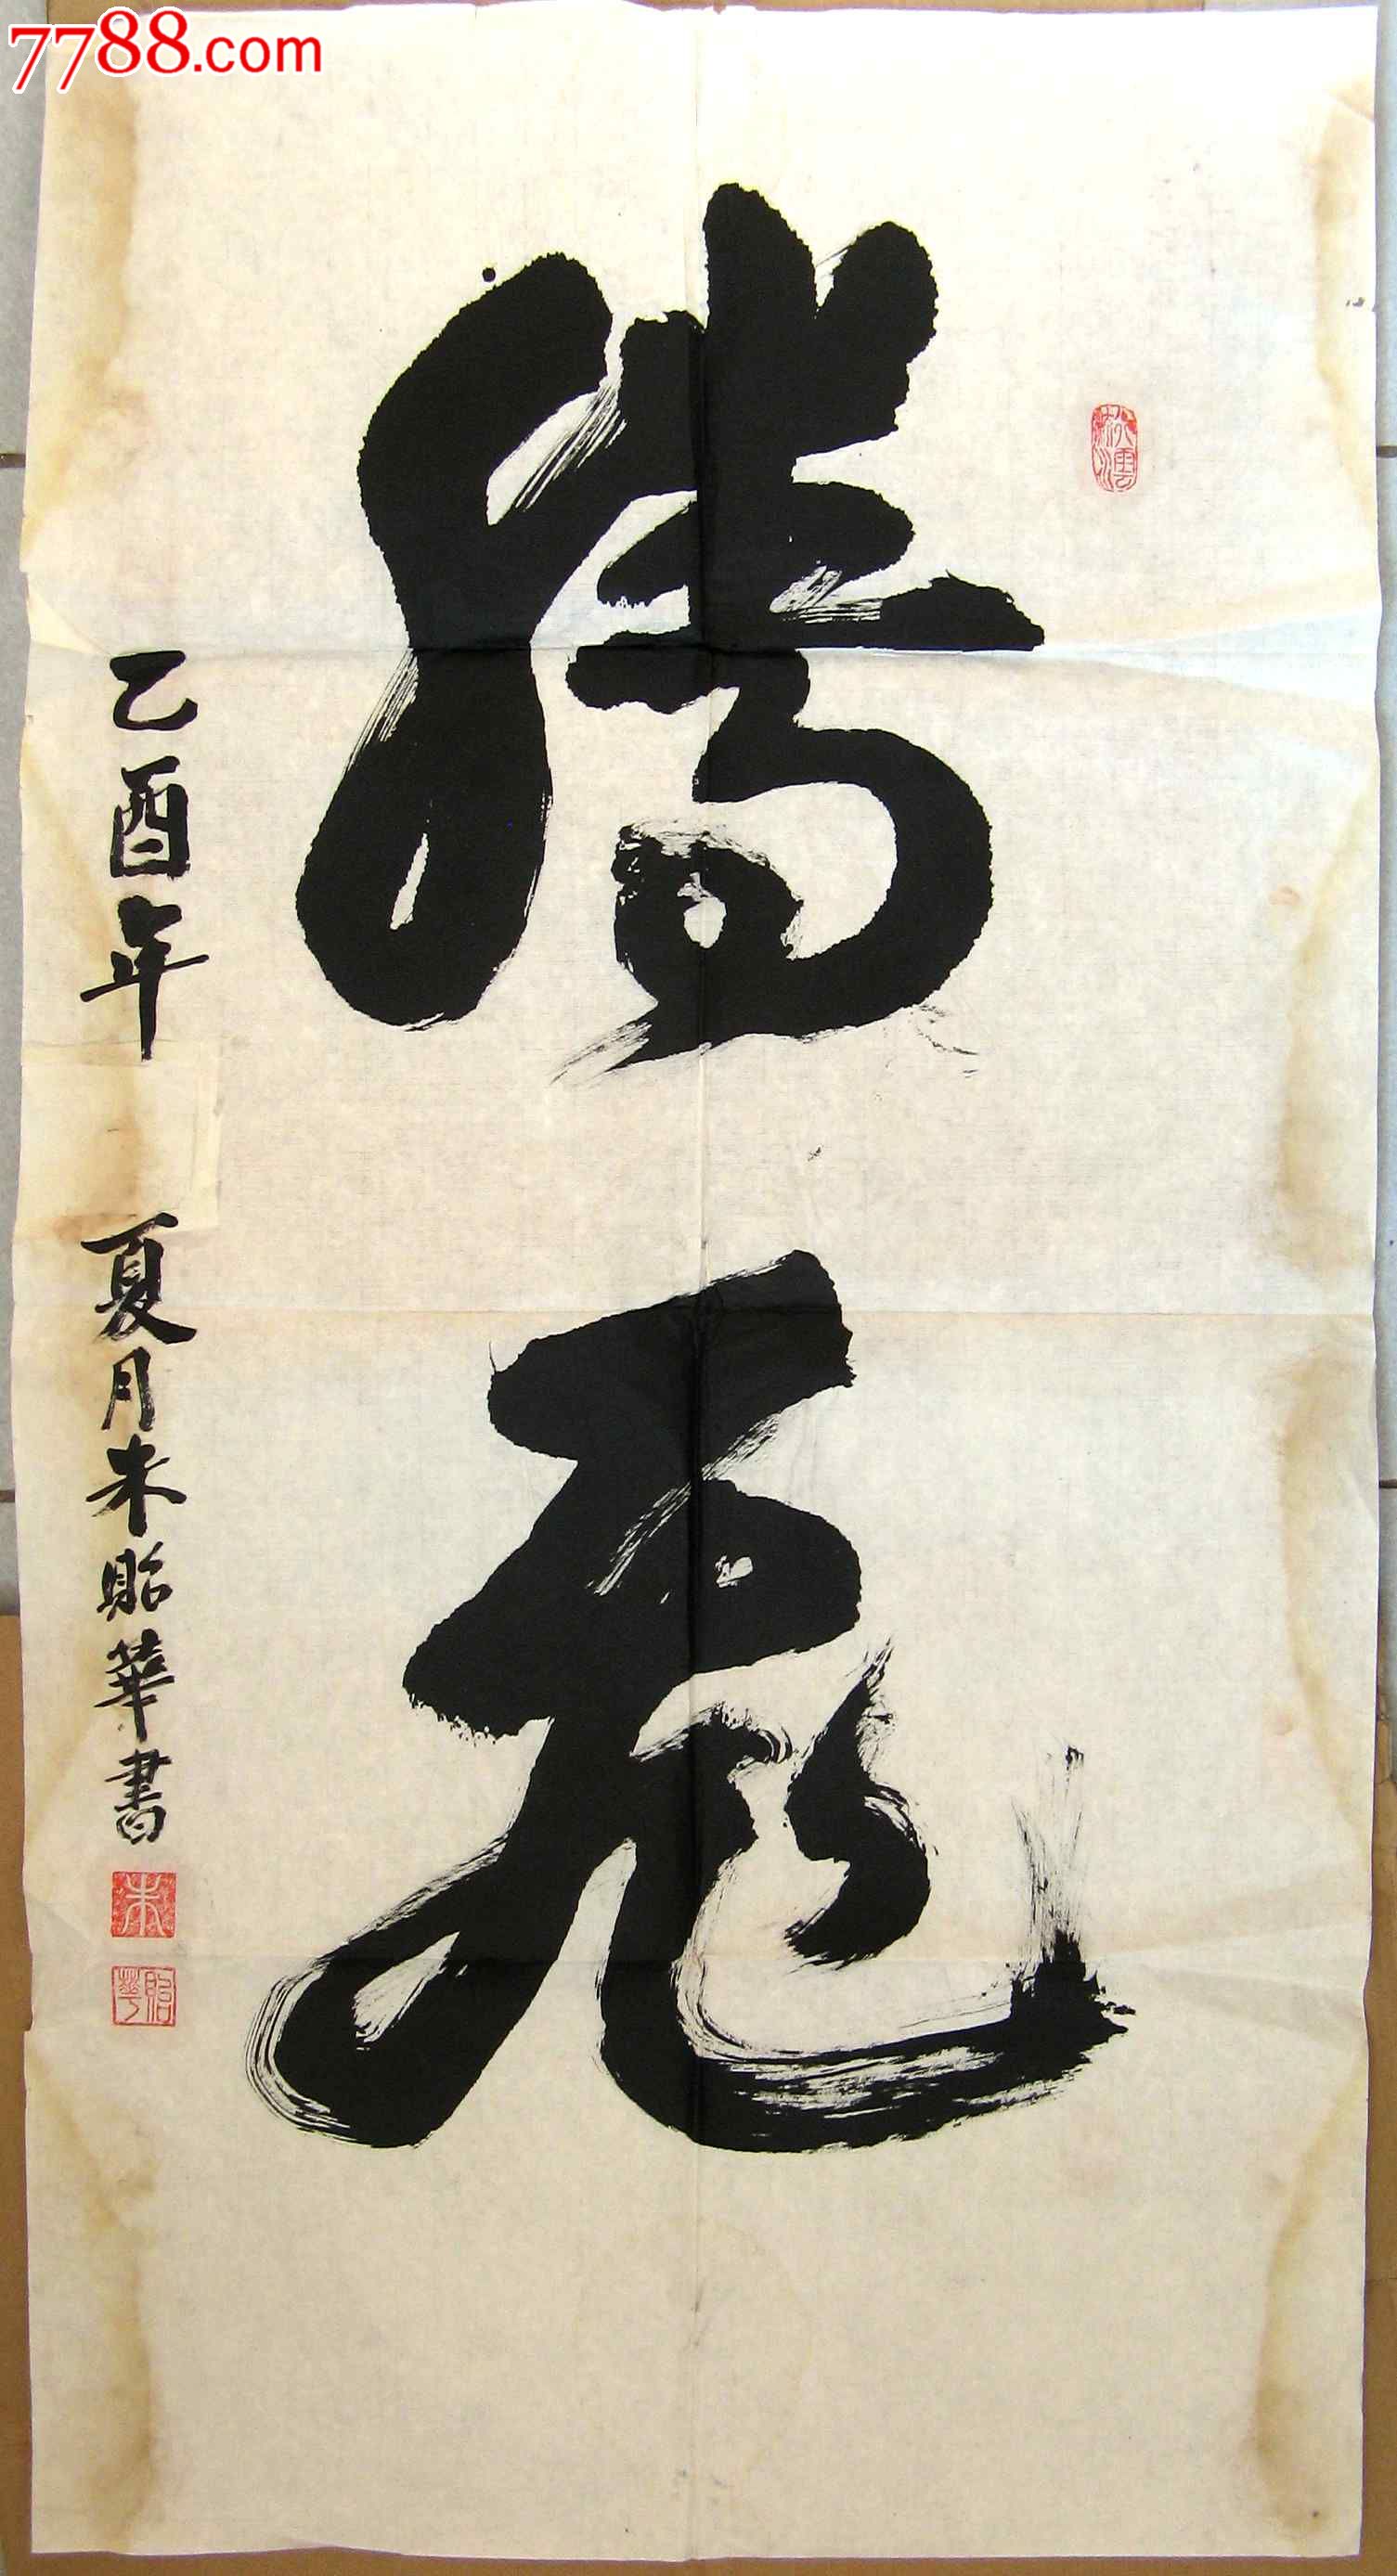 7788.com
騰飛
乙酉年 夏月朱貽華書
朱
貽華